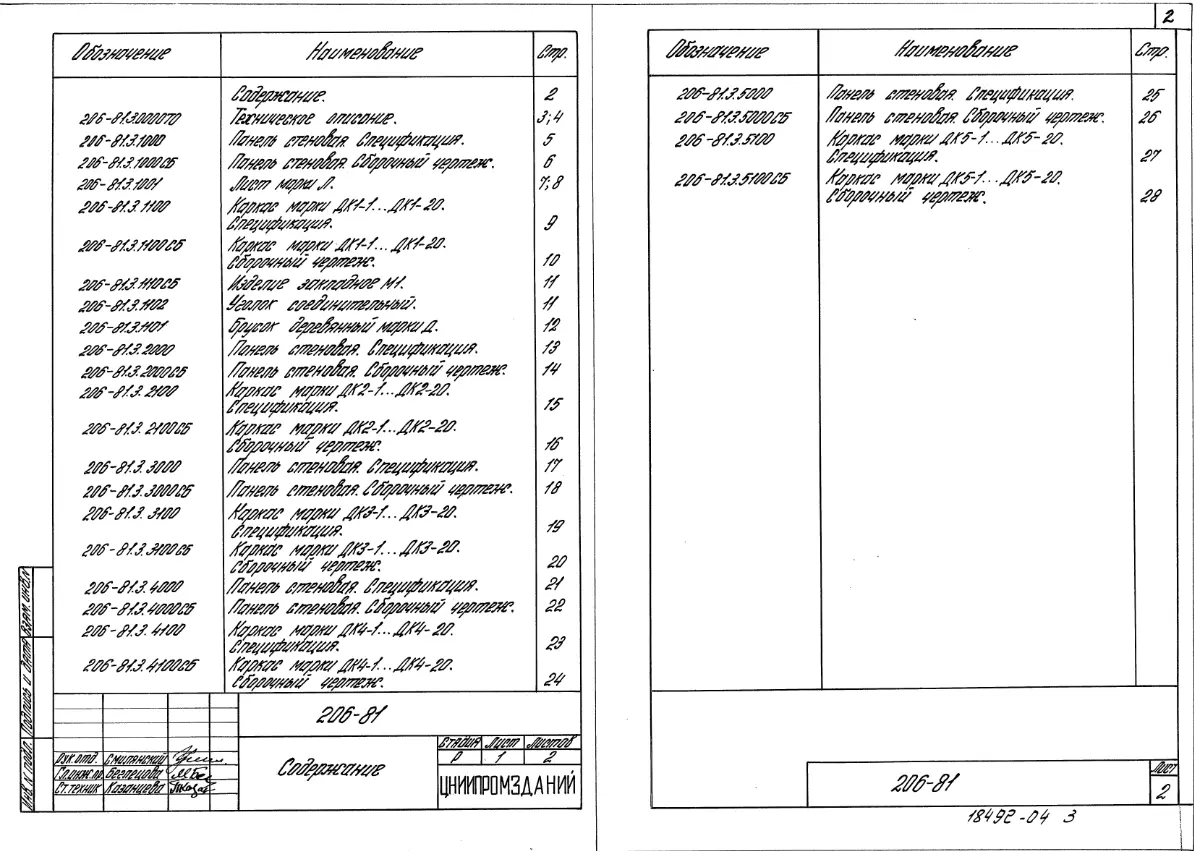 2
Обозначение Наименование Стр.
Содержание. 2
206-81.3.0000ТО Техническое описание. 3;4
206-81.3.1000 Панель стеновая. Спецификация. 5
206-81.3.1000СБ Панель стеновая. Сборочный чертеж. 6
206-81.3.1001 Лист марки Л. 7;8
206-81.3.1100 Каркас марки ДК1-1...ДК1-20.
Спецификация. 9
206-81.3.1100СБ Каркас марки ДК1-1...ДК1-20.
Сборочный чертеж. 10
206-81.3.1110СБ Изделие закладное М1. 11
206-81.3.1102 Уголок соединительный. 11
206-81.3.1101 Брусок деревянный марки Д. 12
206-81.3.2000 Панель стеновая. Спецификация. 13
206-81.3.2000СБ Панель стеновая. Сборочный чертеж. 14
206-81.3.2100 Каркас марки ДК2-1...ДК2-20.
Спецификация. 15
206-81.3.2100СБ Каркас марки ДК2-1...ДК2-20.
Сборочный чертеж. 16
206-81.3.3000 Панель стеновая. Спецификация. 17
206-81.3.3000СБ Панель стеновая. Сборочный чертеж. 18
206-81.3.3100 Каркас марки ДК3-1...ДК3-20.
Спецификация. 19
206-81.3.3100СБ Каркас марки ДК3-1...ДК3-20.
Сборочный чертеж. 20
206-81.3.4000 Панель стеновая. Спецификация. 21
206-81.3.4000СБ Панель стеновая. Сборочный чертеж. 22
206-81.3.4100 Каркас марки ДК4-1...ДК4-20.
Спецификация. 23
206-81.3.4100СБ Каркас марки ДК4-1...ДК4-20.
Сборочный чертеж. 24
Инв. № подл. Подпись и дата Взам. инв. №
206-81
Рук. отд. Смилянский
Гл. инж. пр. Беспецова
Ст. техник Казанцева
Содержание
Стадия Лист Листов
Р 1 2
ЦНИИПРОМЗДАНИЙ
Обозначение Наименование Стр.
206-81.3.5000 Панель стеновая. Спецификация. 25
206-81.3.5000СБ Панель стеновая. Сборочный чертеж. 26
206-81.3.5100 Каркас марки ДК5-1...ДК5-20.
Спецификация. 27
206-81.3.5100СБ Каркас марки ДК5-1...ДК5-20.
Сборочный чертеж. 28
206-81
Лист
2
18492-04 3